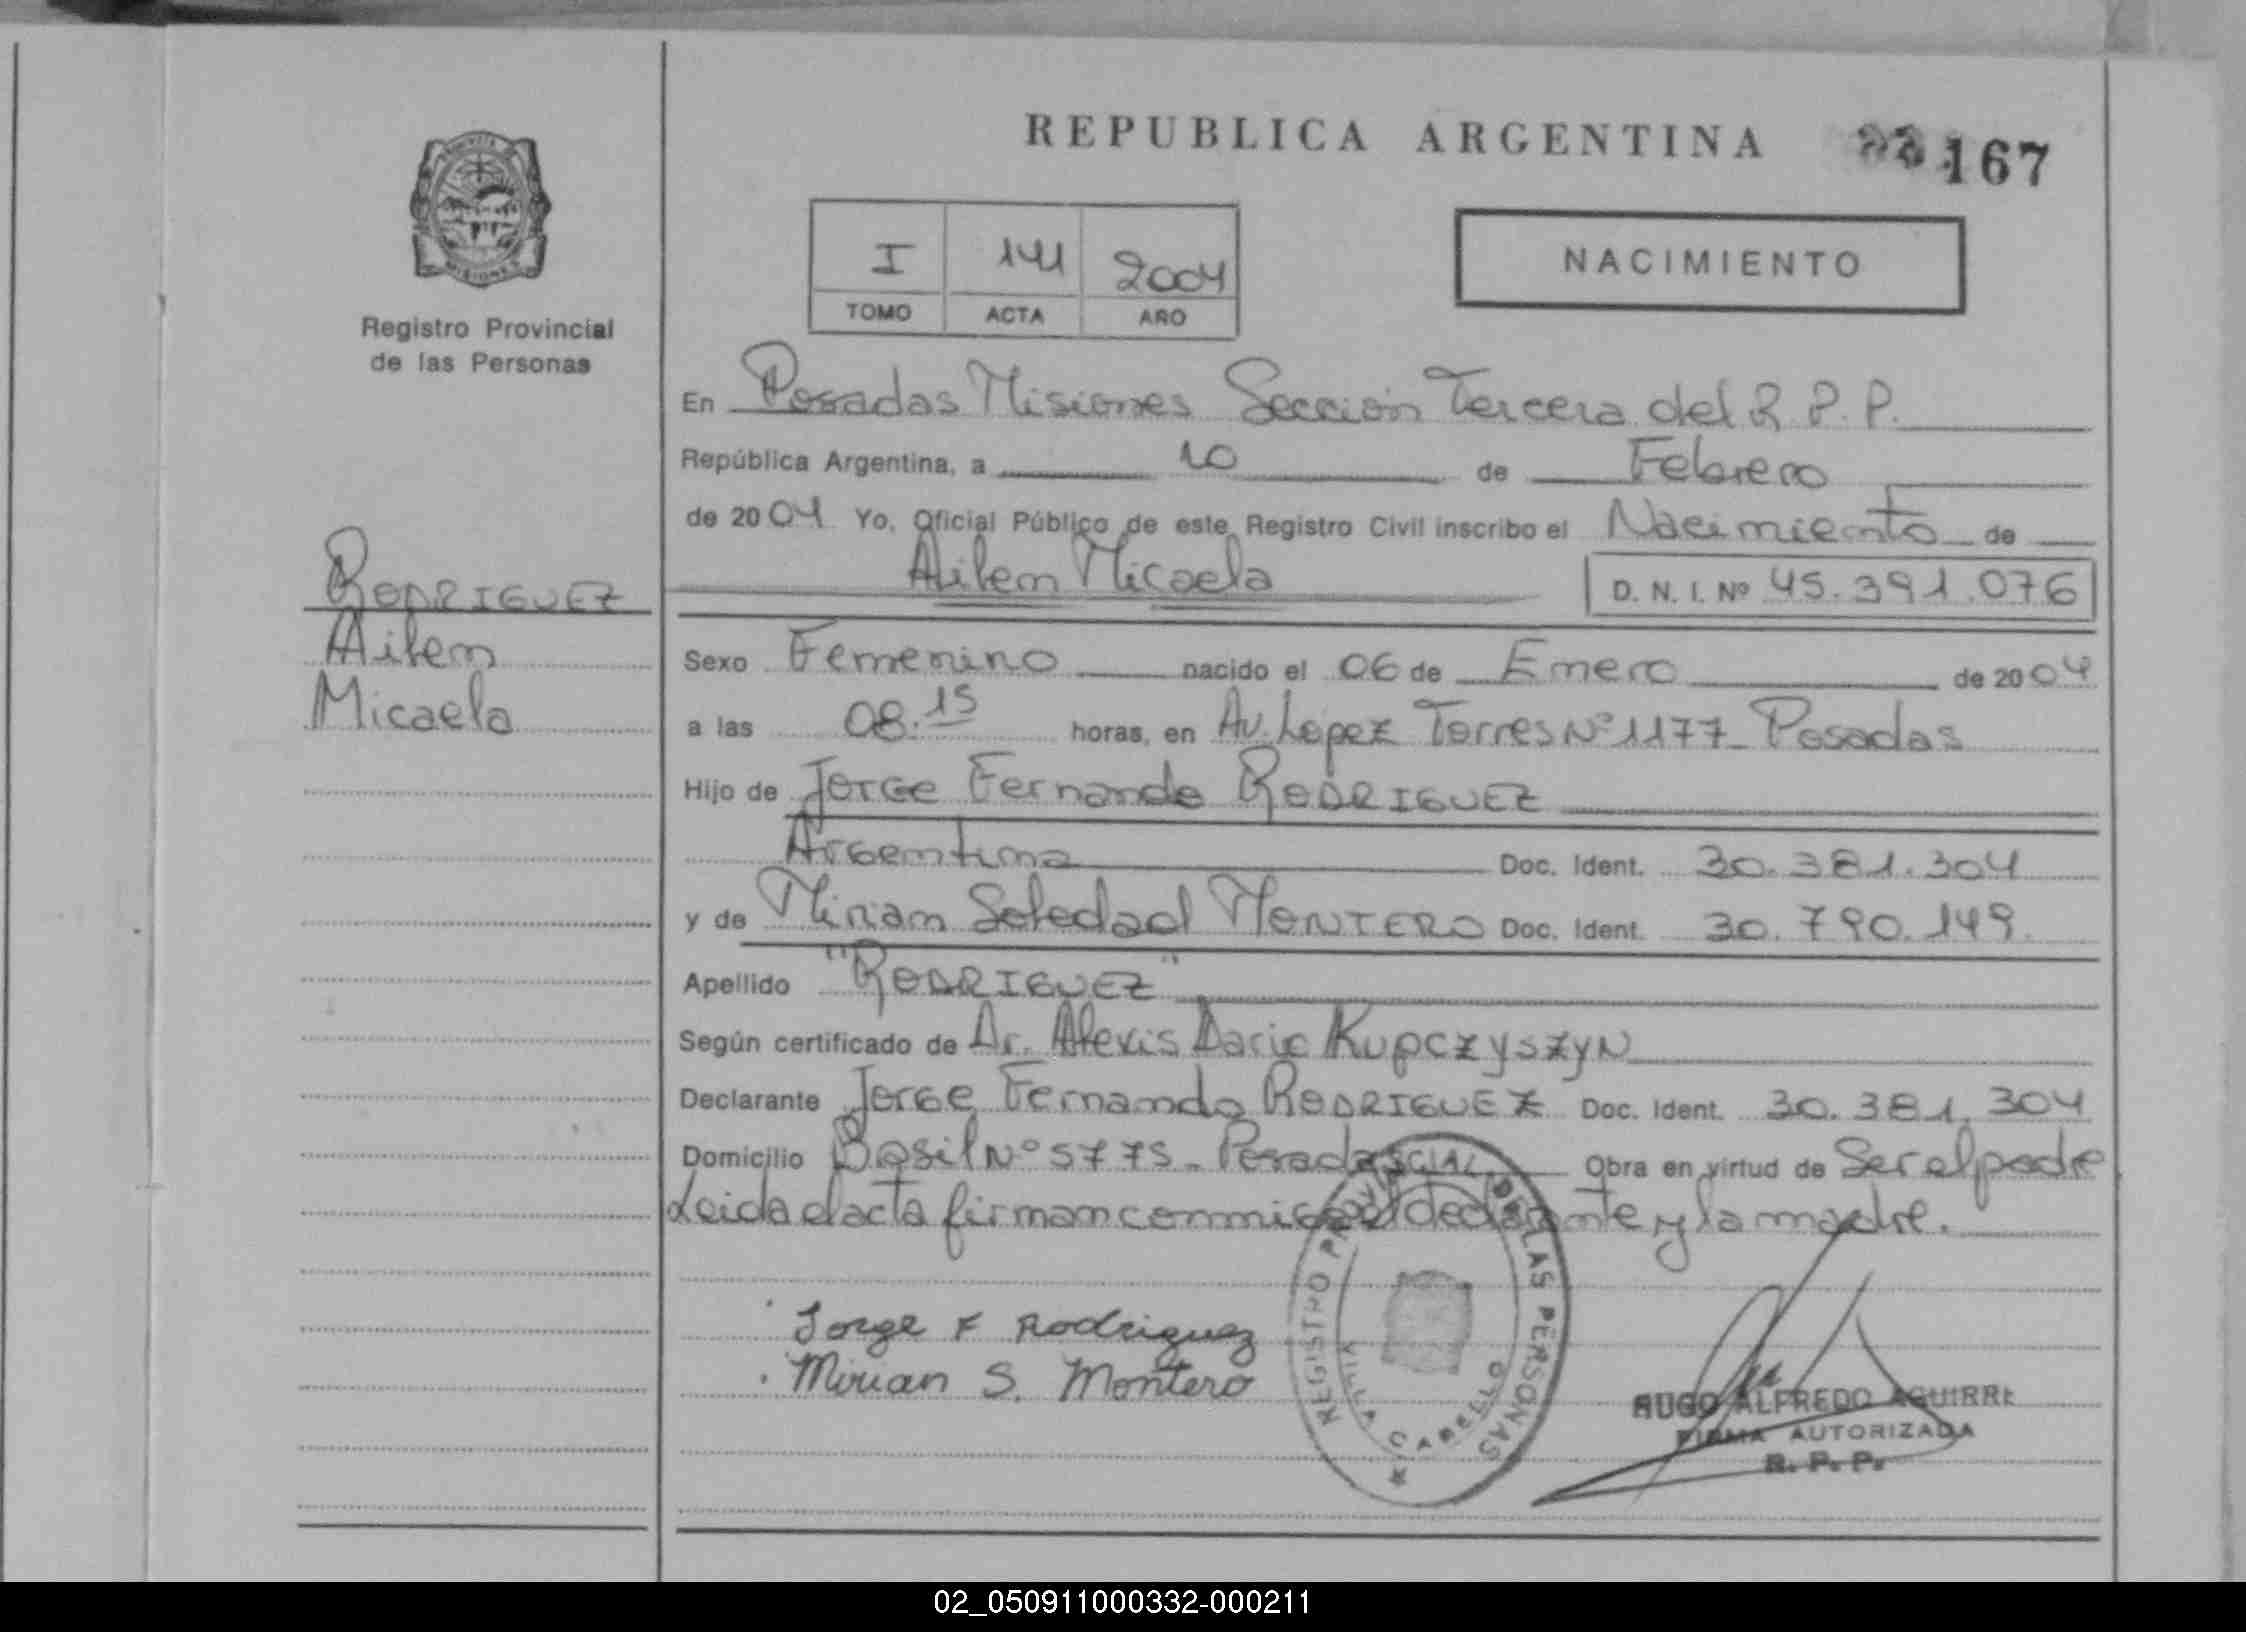 REPUBLICA ARGENTINA
167
PROVINCIA DE
MISIONES
Registro Provincial
de las Personas
I 141 2004
TOMO ACTA AÑO
NACIMIENTO
En Posadas Misiones Sección Tercera del R.P.P.
República Argentina, a 10 de Febrero
de 2004 Yo, Oficial Público de este Registro Civil inscribo el Nacimiento de
Ailem Micaela D. N. I. Nº 45.391.076
RODRIGUEZ
Ailem
Micaela
Sexo Femenino nacido el 06 de Enero de 2004
a las 08.15 horas, en Av. Lopez Torres Nº 1177 - Posadas
Hijo de Jorge Fernando RODRIGUEZ
Argentina Doc. Ident. 30.381.304
y de Miriam Soledad MONTERO Doc. Ident. 30.790.149.
Apellido "RODRIGUEZ"
Según certificado de Dr. Alexis Dario Kupczyszyn
Declarante Jorge Fernando RODRIGUEZ Doc. Ident. 30.381.304
Domicilio Nº 5775 - Posadas Obra en virtud de Ser el padre
Leida el acta firman conmigo el declarante y la madre.
Jorge F Rodriguez
Mirian S. Montero
REGISTRO PROVINCIAL DE LAS PERSONAS
VILLA CABELLO
HUGO ALFREDO AGUIRRE
FIRMA AUTORIZADA
R. P. P.
02_050911000332-000211